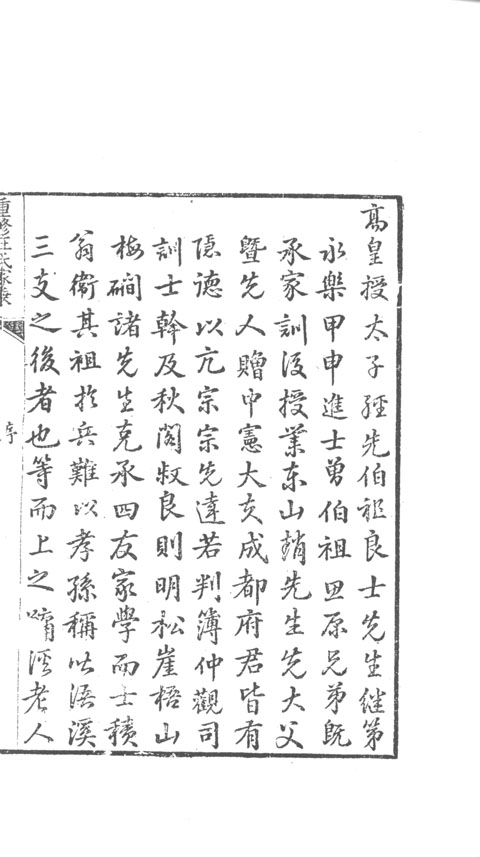 高皇授太子經先伯祖良士先生繼第
永樂甲申進士勇伯祖思原兄弟既
承家訓復授業東山趙先生先大父
暨先人贈中憲大夫成都府君皆有
隱德以亢宗宗先達若判簿仲觀司
訓士幹及秋閣叔良則明松崖梧山
梅磵諸先生克承四友家學而士積
翁衛其祖於兵難以孝孫稱此浯溪
三支之後者也等而上之嘯溪老人
重修汪氏家乘
序